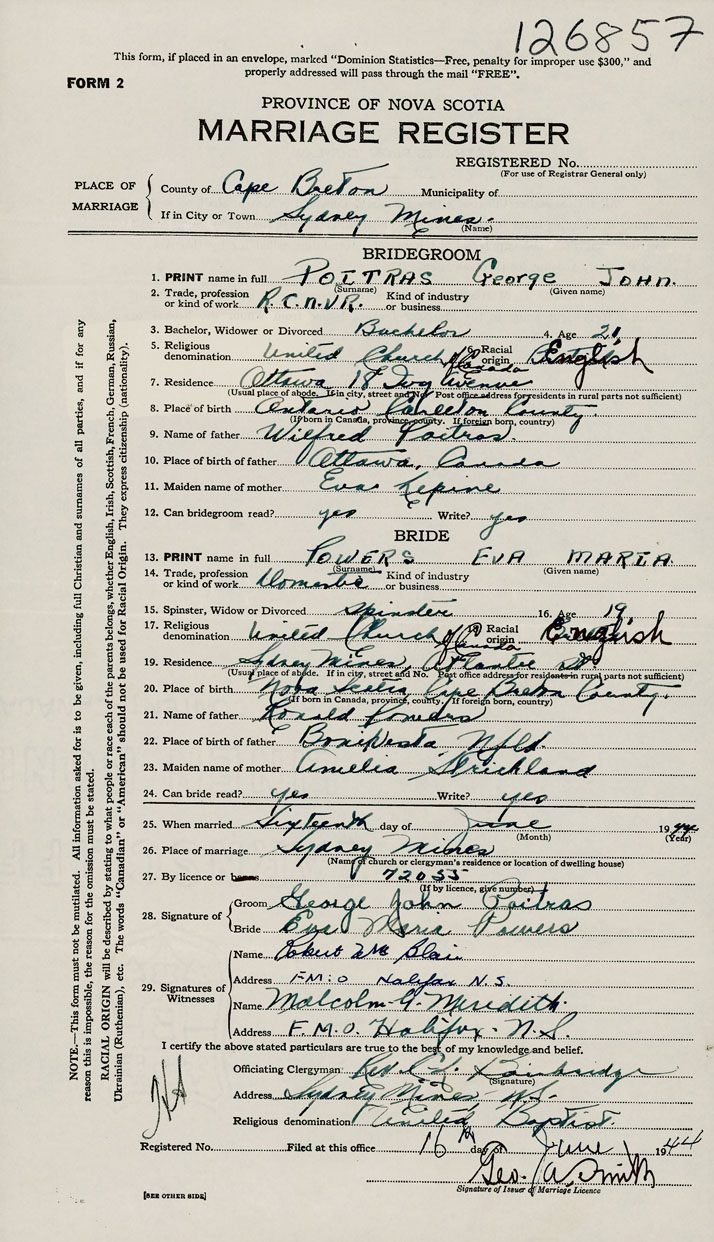 126857
This form, if placed in an envelope, marked "Dominion Statistics—Free, penalty for improper use $300," and
properly addressed will pass through the mail "FREE".
FORM 2
PROVINCE OF NOVA SCOTIA
MARRIAGE REGISTER
REGISTERED No.
(For use of Registrar General only)
PLACE OF MARRIAGE
County of Cape Breton Municipality of
If in City or Town Sydney Mines.
(Name)
BRIDEGROOM
1. PRINT name in full POITRAS George JOHN.
(Surname) (Given name)
2. Trade, profession or kind of work R.C.N.V.R. Kind of industry or business
3. Bachelor, Widower or Divorced Bachelor 4. Age 21
5. Religious denomination United Church of Canada 6. Racial origin English
7. Residence Ottawa 18 Ivy Avenue
(Usual place of abode. If in city, street and No. Post office address for residents in rural parts not sufficient)
8. Place of birth Ontario Carleton County.
(If born in Canada, province, county. If foreign born, country)
9. Name of father Wilfred Poitras.
10. Place of birth of father Ottawa, Canada
11. Maiden name of mother Eva Lepine
12. Can bridegroom read? yes Write? yes
BRIDE
13. PRINT name in full POWERS EVA MARIA.
(Surname) (Given name)
14. Trade, profession or kind of work Domestic Kind of industry or business
15. Spinster, Widow or Divorced Spinster 16. Age 19
17. Religious denomination United Church of Canada Racial origin English
19. Residence Sydney Mines, Atlantic St.
(Usual place of abode. If in city, street and No. Post office address for residents in rural parts not sufficient)
20. Place of birth Nova Scotia, Cape Breton County.
(If born in Canada, province, county. If foreign born, country)
21. Name of father Ronald Powers
22. Place of birth of father Bonavista Nfld.
23. Maiden name of mother Amelia Strickland
24. Can bride read? yes Write? yes
25. When married Sixteenth day of June 1944
(Month) (Year)
26. Place of marriage Sydney Mines
(Name of church or clergyman's residence or location of dwelling house)
27. By licence or banns 72055
(If by licence, give number)
28. Signature of
Groom George John Poitras
Bride Eva Maria Powers
29. Signatures of Witnesses
Name Robert Blair
Address F.M.O Halifax N.S.
Name Malcolm G. Meredith.
Address F.M.O. Halifax. N.S.
I certify the above stated particulars are true to the best of my knowledge and belief.
Officiating Clergyman Rev.
(Signature)
Address Sydney Mines N.S.
Religious denomination United Baptist.
Registered No. Filed at this office 16th day of June 1944
Geo. A. Smith
Signature of Issuer of Marriage Licence
[SEE OTHER SIDE]
NOTE.—This form must not be mutilated. All information asked for is to be given, including full Christian and surnames of all parties, and if for any
reason this is impossible, the reason for the omission must be stated.
RACIAL ORIGIN will be described by stating to what people or race each of the parents belongs, whether English, Irish, Scottish, French, German, Russian,
Ukrainian (Ruthenian), etc. The words "Canadian" or "American" should not be used for Racial Origin. They express citizenship (nationality).